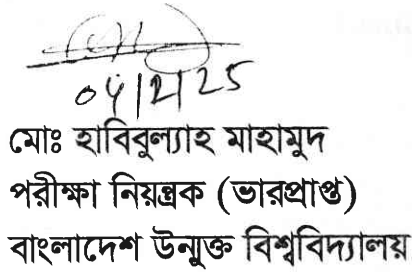 04/2/25
মোঃ হাবিবুল্যাহ মাহামুদ
পরীক্ষা নিয়ন্ত্রক (ভারপ্রাপ্ত)
বাংলাদেশ উন্মুক্ত বিশ্ববিদ্যালয়